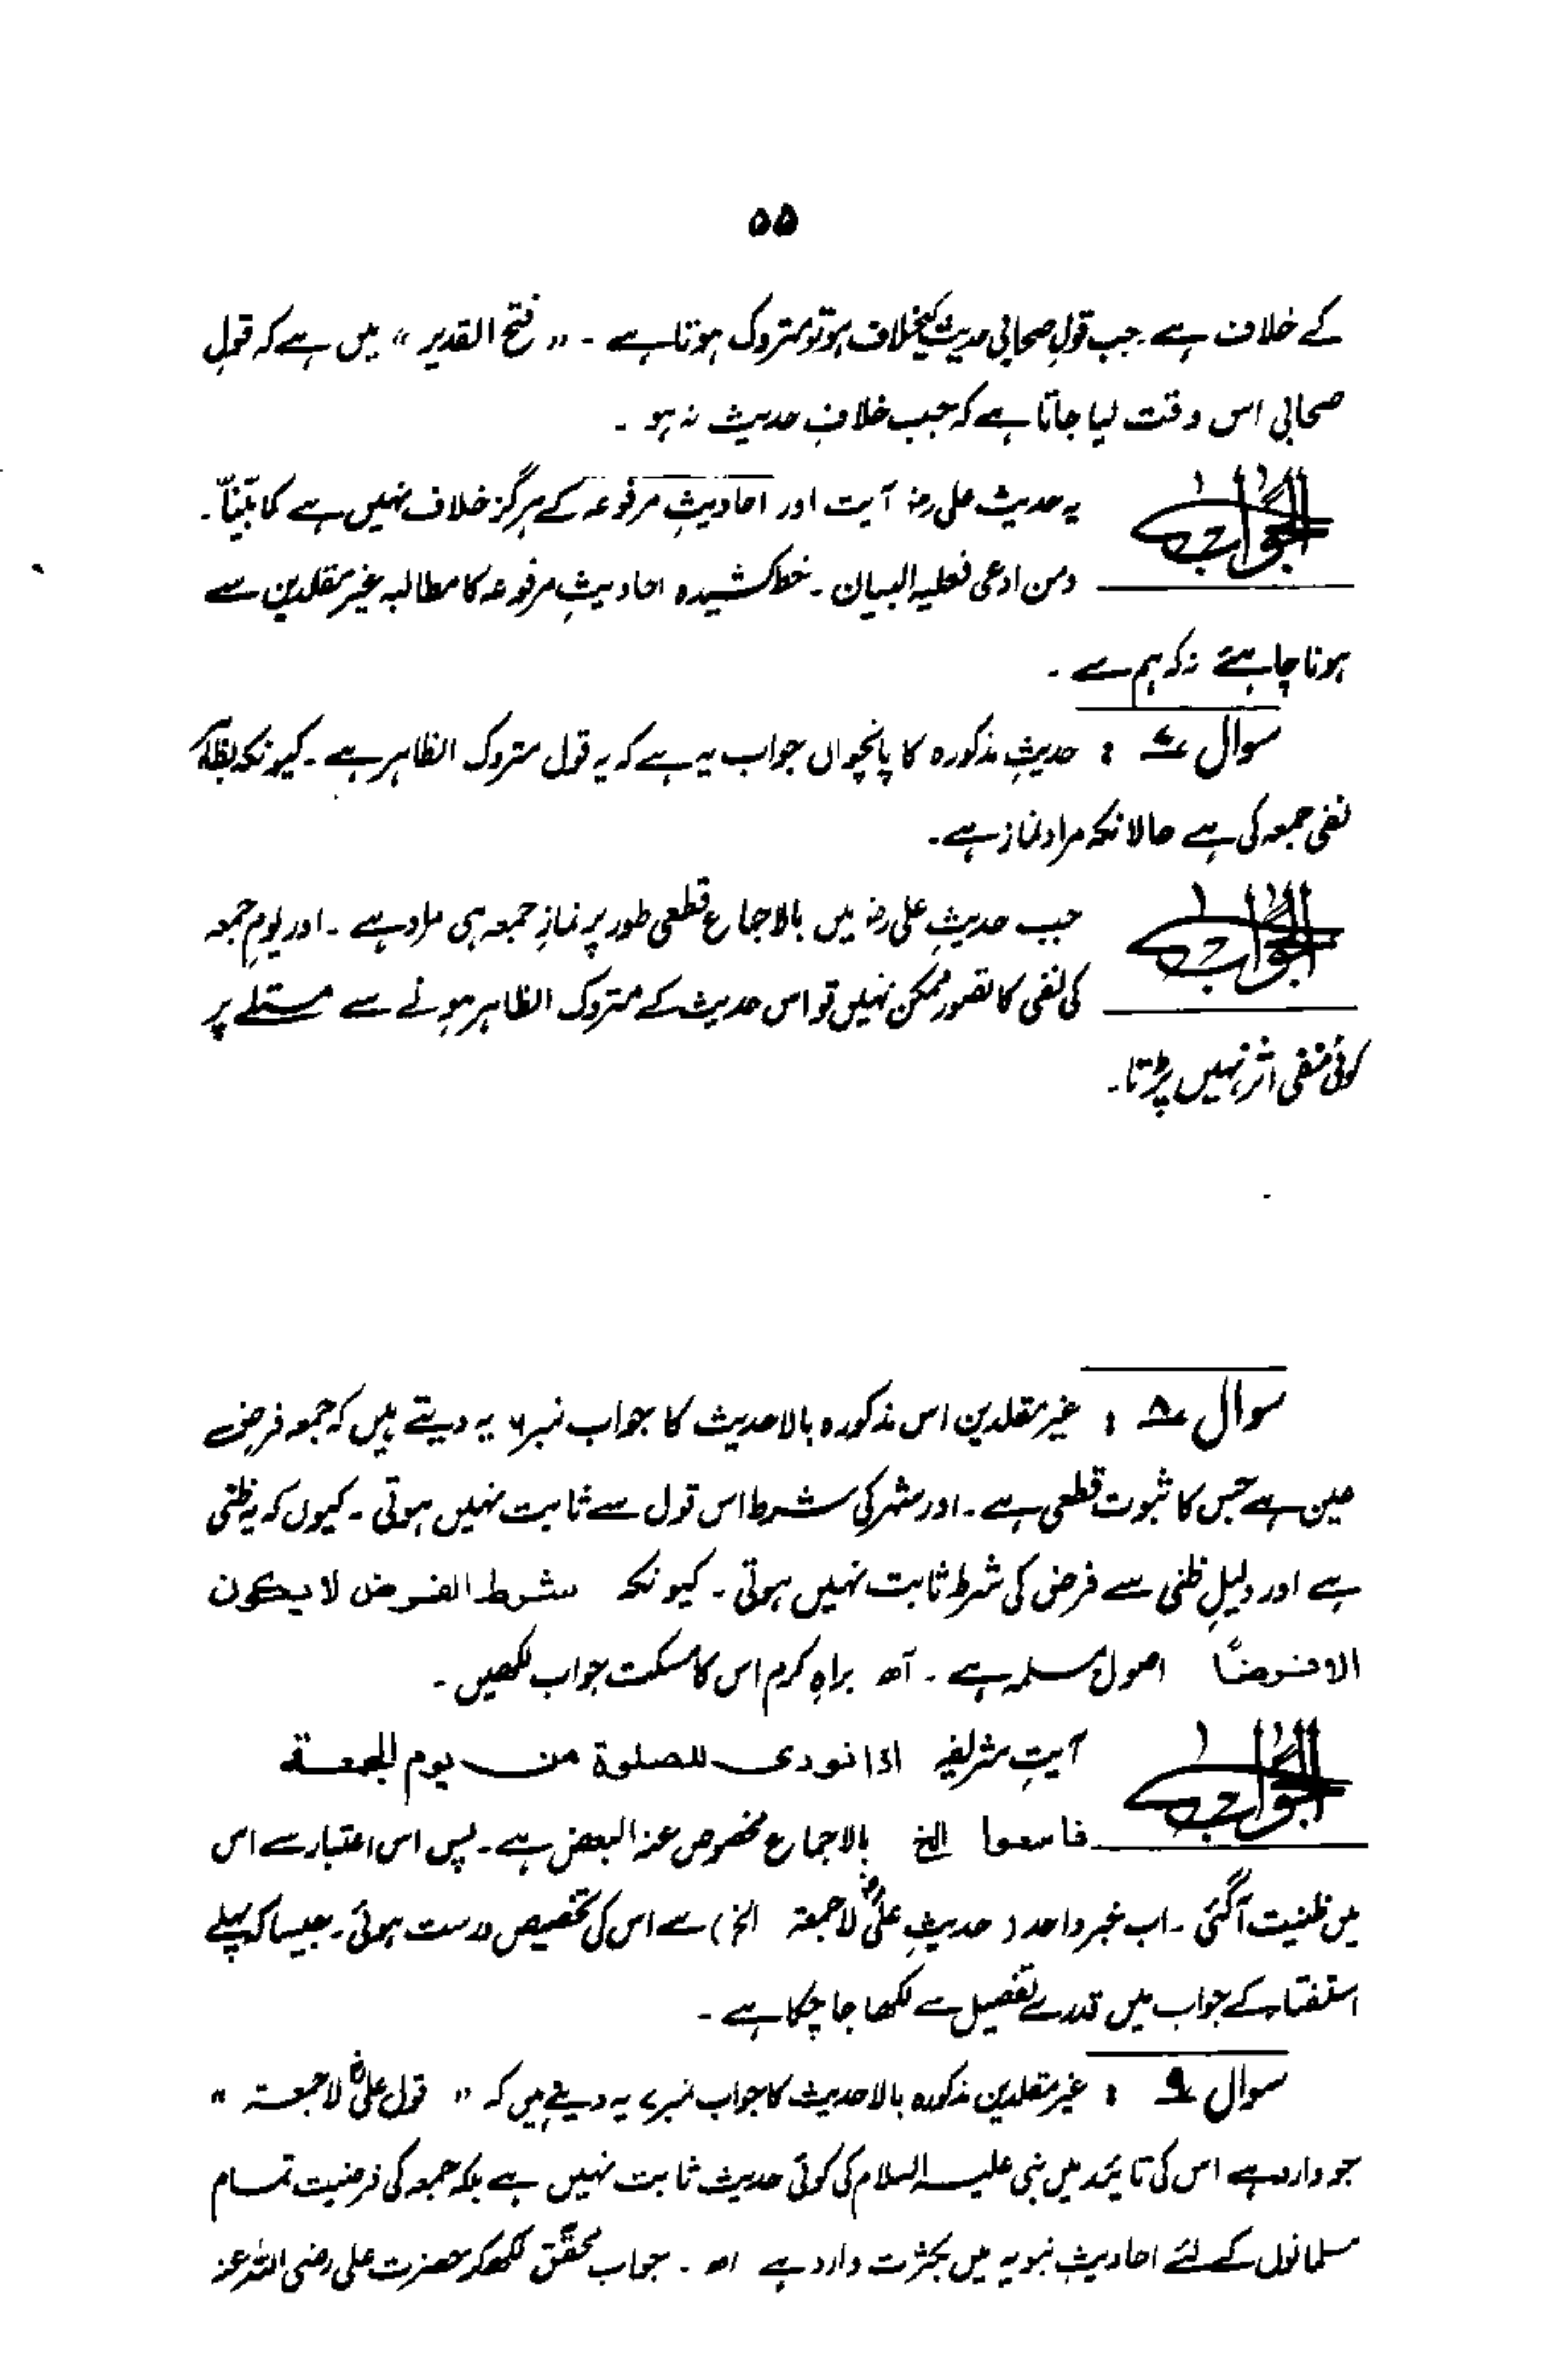 ۵۵
کے خلاف ہے جب قولِ صحابی حدیث کیخلاف ہو تو متروک ہوتا ہے ۔ " فتح القدیر " میں ہے کہ قولِ
صحابی اس وقت لیا جاتا ہے کہ جب خلافِ حدیث نہ ہو ۔
الجواب
یہ حدیث علی رضؓ آیت اور احادیثِ مرفوعہ کے ہرگز خلاف نہیں ہے کما بیّنّا ۔
ومن ادعی فعلیہ البیان ۔ خط کشیدہ احادیثِ مرفوعہ کا مطالبہ غیر مقلدین سے
ہونا چاہئے نہ کہ ہم سے ۔
سوال ۷ : حدیثِ مذکورہ کا پانچواں جواب یہ ہے کہ یہ قول متروک الظاہر ہے ۔ کیونکہ بظاہر
نفی جمعہ کی ہے حالانکہ مراد نماز ہے ۔
الجواب
جب حدیثِ علی رضؓ میں بالاجماع قطعی طور پر نمازِ جمعہ ہی مراد ہے ۔ اور یومِ جمعہ
کی نفی کا تصور ممکن نہیں تو اس حدیث کے متروک الظاہر ہونے سے مسئلے پر
کوئی منفی اثر نہیں پڑتا ۔
سوال ۸ : غیر مقلدین اس مذکورہ بالا حدیث کا جواب نمبر ۶ یہ دیتے ہیں کہ جمعہ فرض
عین ہے جس کا ثبوت قطعی ہے ۔ اور مصر کی شرط اس قول سے ثابت نہیں ہوتی ۔ کیوں کہ یہ ظنّی
ہے اور دلیلِ ظنی سے فرض کی شرط ثابت نہیں ہوتی ۔ کیونکہ شرط الفرض لا یکون
الا فرضاً اصول مسلمہ ہے ۔ آھ براہِ کرم اس کا مسکت جواب لکھیں ۔
الجواب
آیتِ شریفہ اذا نودی للصلوة من یوم الجمعة
فاسعوا الخ بالاجماع مخصوص عنہ البعض ہے ۔ پس اس اعتبار سے اس
میں ظنیت آگئی ۔ اب خبرِ واحد ( حدیثِ علیؓ لا جمعۃ الخ ) سے اس کی تخصیص درست ہوئی ۔ جیسا کہ پہلے
استفتاء کے جواب میں قدرے تفصیل سے لکھا جا چکا ہے ۔
سوال ۹ : غیر مقلدین مذکورہ بالا حدیث کا جواب نمبر ۷ یہ دیتے ہیں کہ " قول علیؓ لا جمعۃ "
جو وارد ہے اس کی تائید میں نبی علیہ السلام کی کوئی حدیث ثابت نہیں ہے بلکہ جمعہ کی فرضیت تمام
مسلمانوں کے لئے احادیثِ نبویہ میں بکثرت وارد ہے اھ ۔ جواب محقّق لکھ کر حضرت علی رضی اللہ عنہ